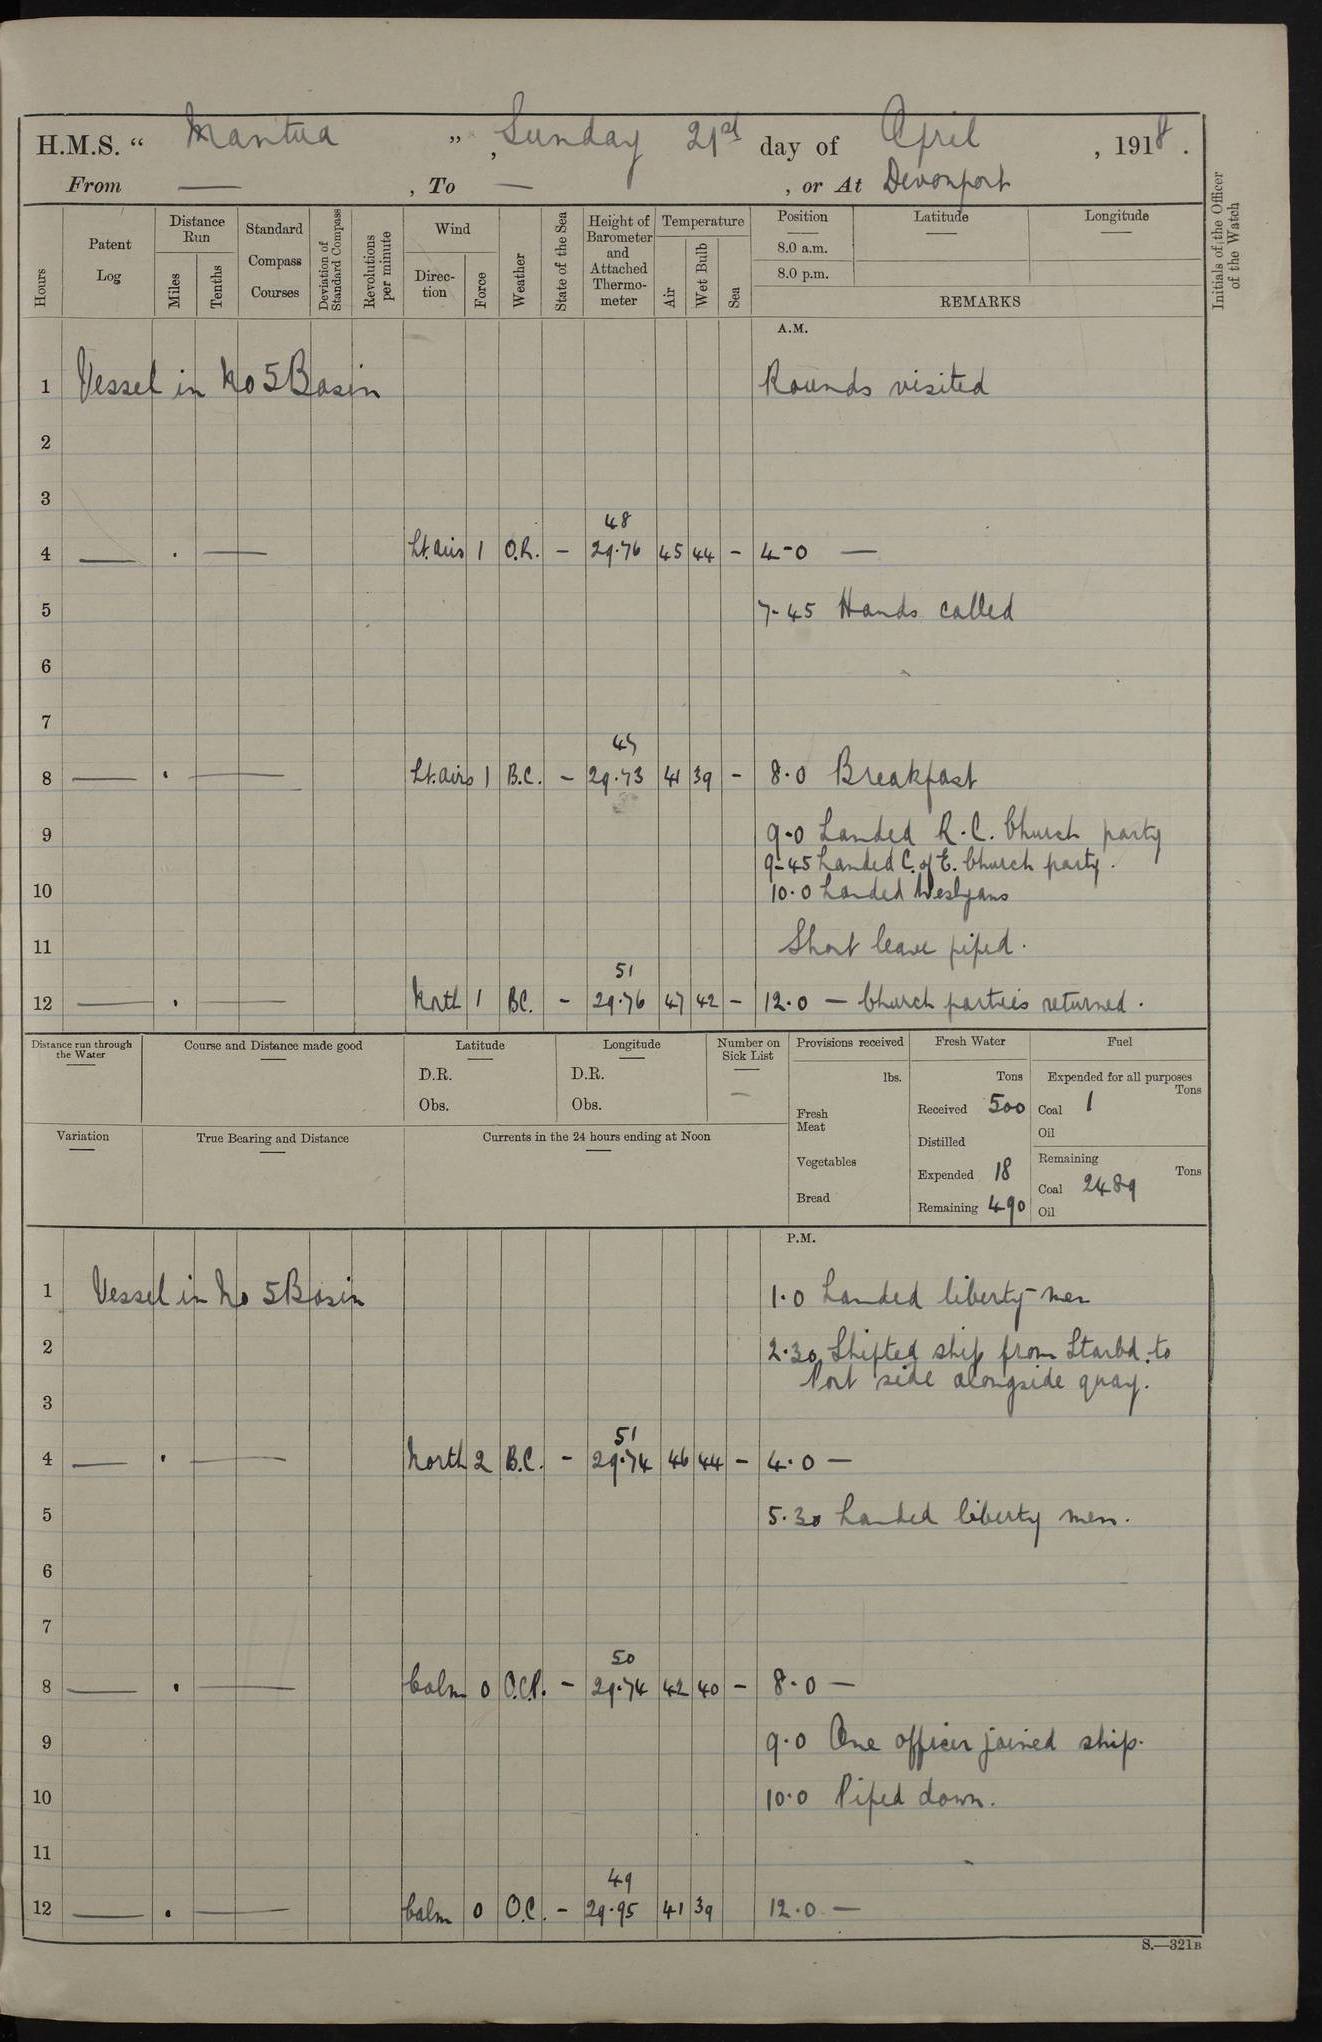 H.M.S. “ Mantua ”, Sunday 21st day of April, 1918.
From — , To — , or At Devonport
Hours
Patent Log
Distance Run
Miles
Tenths
Standard Compass Courses
Deviation of Standard Compass
Revolutions per minute
Wind
Direction
Force
Weather
State of the Sea
Height of Barometer and Attached Thermometer
Temperature
Air
Wet Bulb
Sea
Position
Latitude
Longitude
8.0 a.m.
8.0 p.m.
REMARKS
Initials of the Officer of the Watch
A.M.
1 Vessel in No 5 Basin Rounds visited
2
3
48
4 — . — Lt. airs 1 O.R. - 29.76 45 44 - 4-0 —
5 7-45 Hands called
6
7
45
8 — . — Lt. airs 1 B.C. - 29.73 41 39 - 8.0 Breakfast
9 9-0 Landed R.C. Church party
9-45 Landed C. of E. Church party.
10 10.0 Landed Weslyans
11 Short leave piped.
51
12 — . — North 1 BC. - 29.76 47 42 - 12.0 — Church parties returned.
Distance run through the Water
Course and Distance made good
Latitude
D.R.
Obs.
Longitude
D.R.
Obs.
Number on Sick List
—
Variation
True Bearing and Distance
Currents in the 24 hours ending at Noon
Provisions received
lbs.
Fresh Meat
Vegetables
Bread
Fresh Water
Tons
Received 500
Distilled
Expended 18
Remaining 490
Fuel
Expended for all purposes
Tons
Coal 1
Oil
Remaining
Tons
Coal 2489
Oil
P.M.
1 Vessel in No 5 Basin 1.0 Landed liberty men
2 2.30 Shifted ship from Starbd. to
Port side alongside quay.
3
51
4 — . — North 2 B.C. - 29.74 46 44 - 4.0 —
5 5.30 Landed liberty men.
6
7
50
8 — . — Calm 0 O.C.P. - 29.74 42 40 - 8.0 —
9 9.0 One officer joined ship.
10 10.0 Piped down.
11
49
12 — . — Calm 0 O.C. - 29.95 41 39 12.0 —
S.—321B